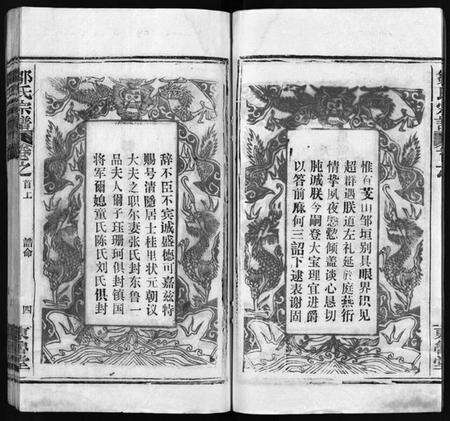 惟有芰山邹垣别具眼界识见
超群遇朕道左礼延於庭燕衎
情挚夙夜慇懃倾盖谈心恳切
肫诚朕今嗣登大宝理宜进爵
以答前庥何三詔下逮表谢固
辞不臣不宾诚盛德可嘉兹特
赐号清隱居士桂里状元朝议
大夫之职尔妻张氏封东鲁一
品夫人爾子珏珊珂俱封镇国
将军爾媳童氏陈氏刘氏俱封
邹氏宗譜
卷之首上
誥命
四